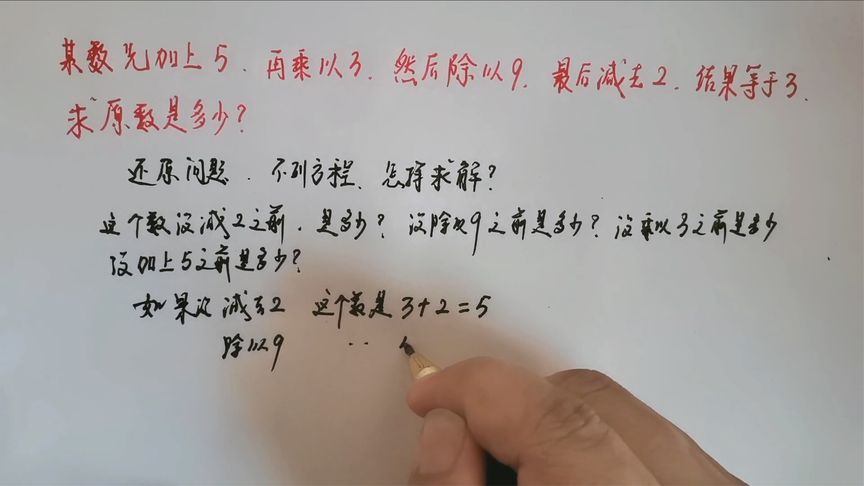 某数先加上5.再乘以3.然后除以9.最后减去2.结果等于3.
求原数是多少?
还原问题.不列方程、怎样求解?
这个数没减2之前.是多少?没除以9之前是多少?没乘以3之前是多少
没加上5之前是多少?
如果没减去2 这个数是3+2=5
除以9 ··